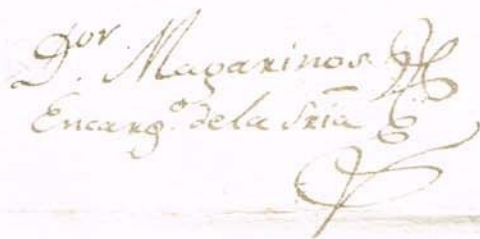 D.ᵒʳ Magarinos
Encarg.ᵒ de la Sria